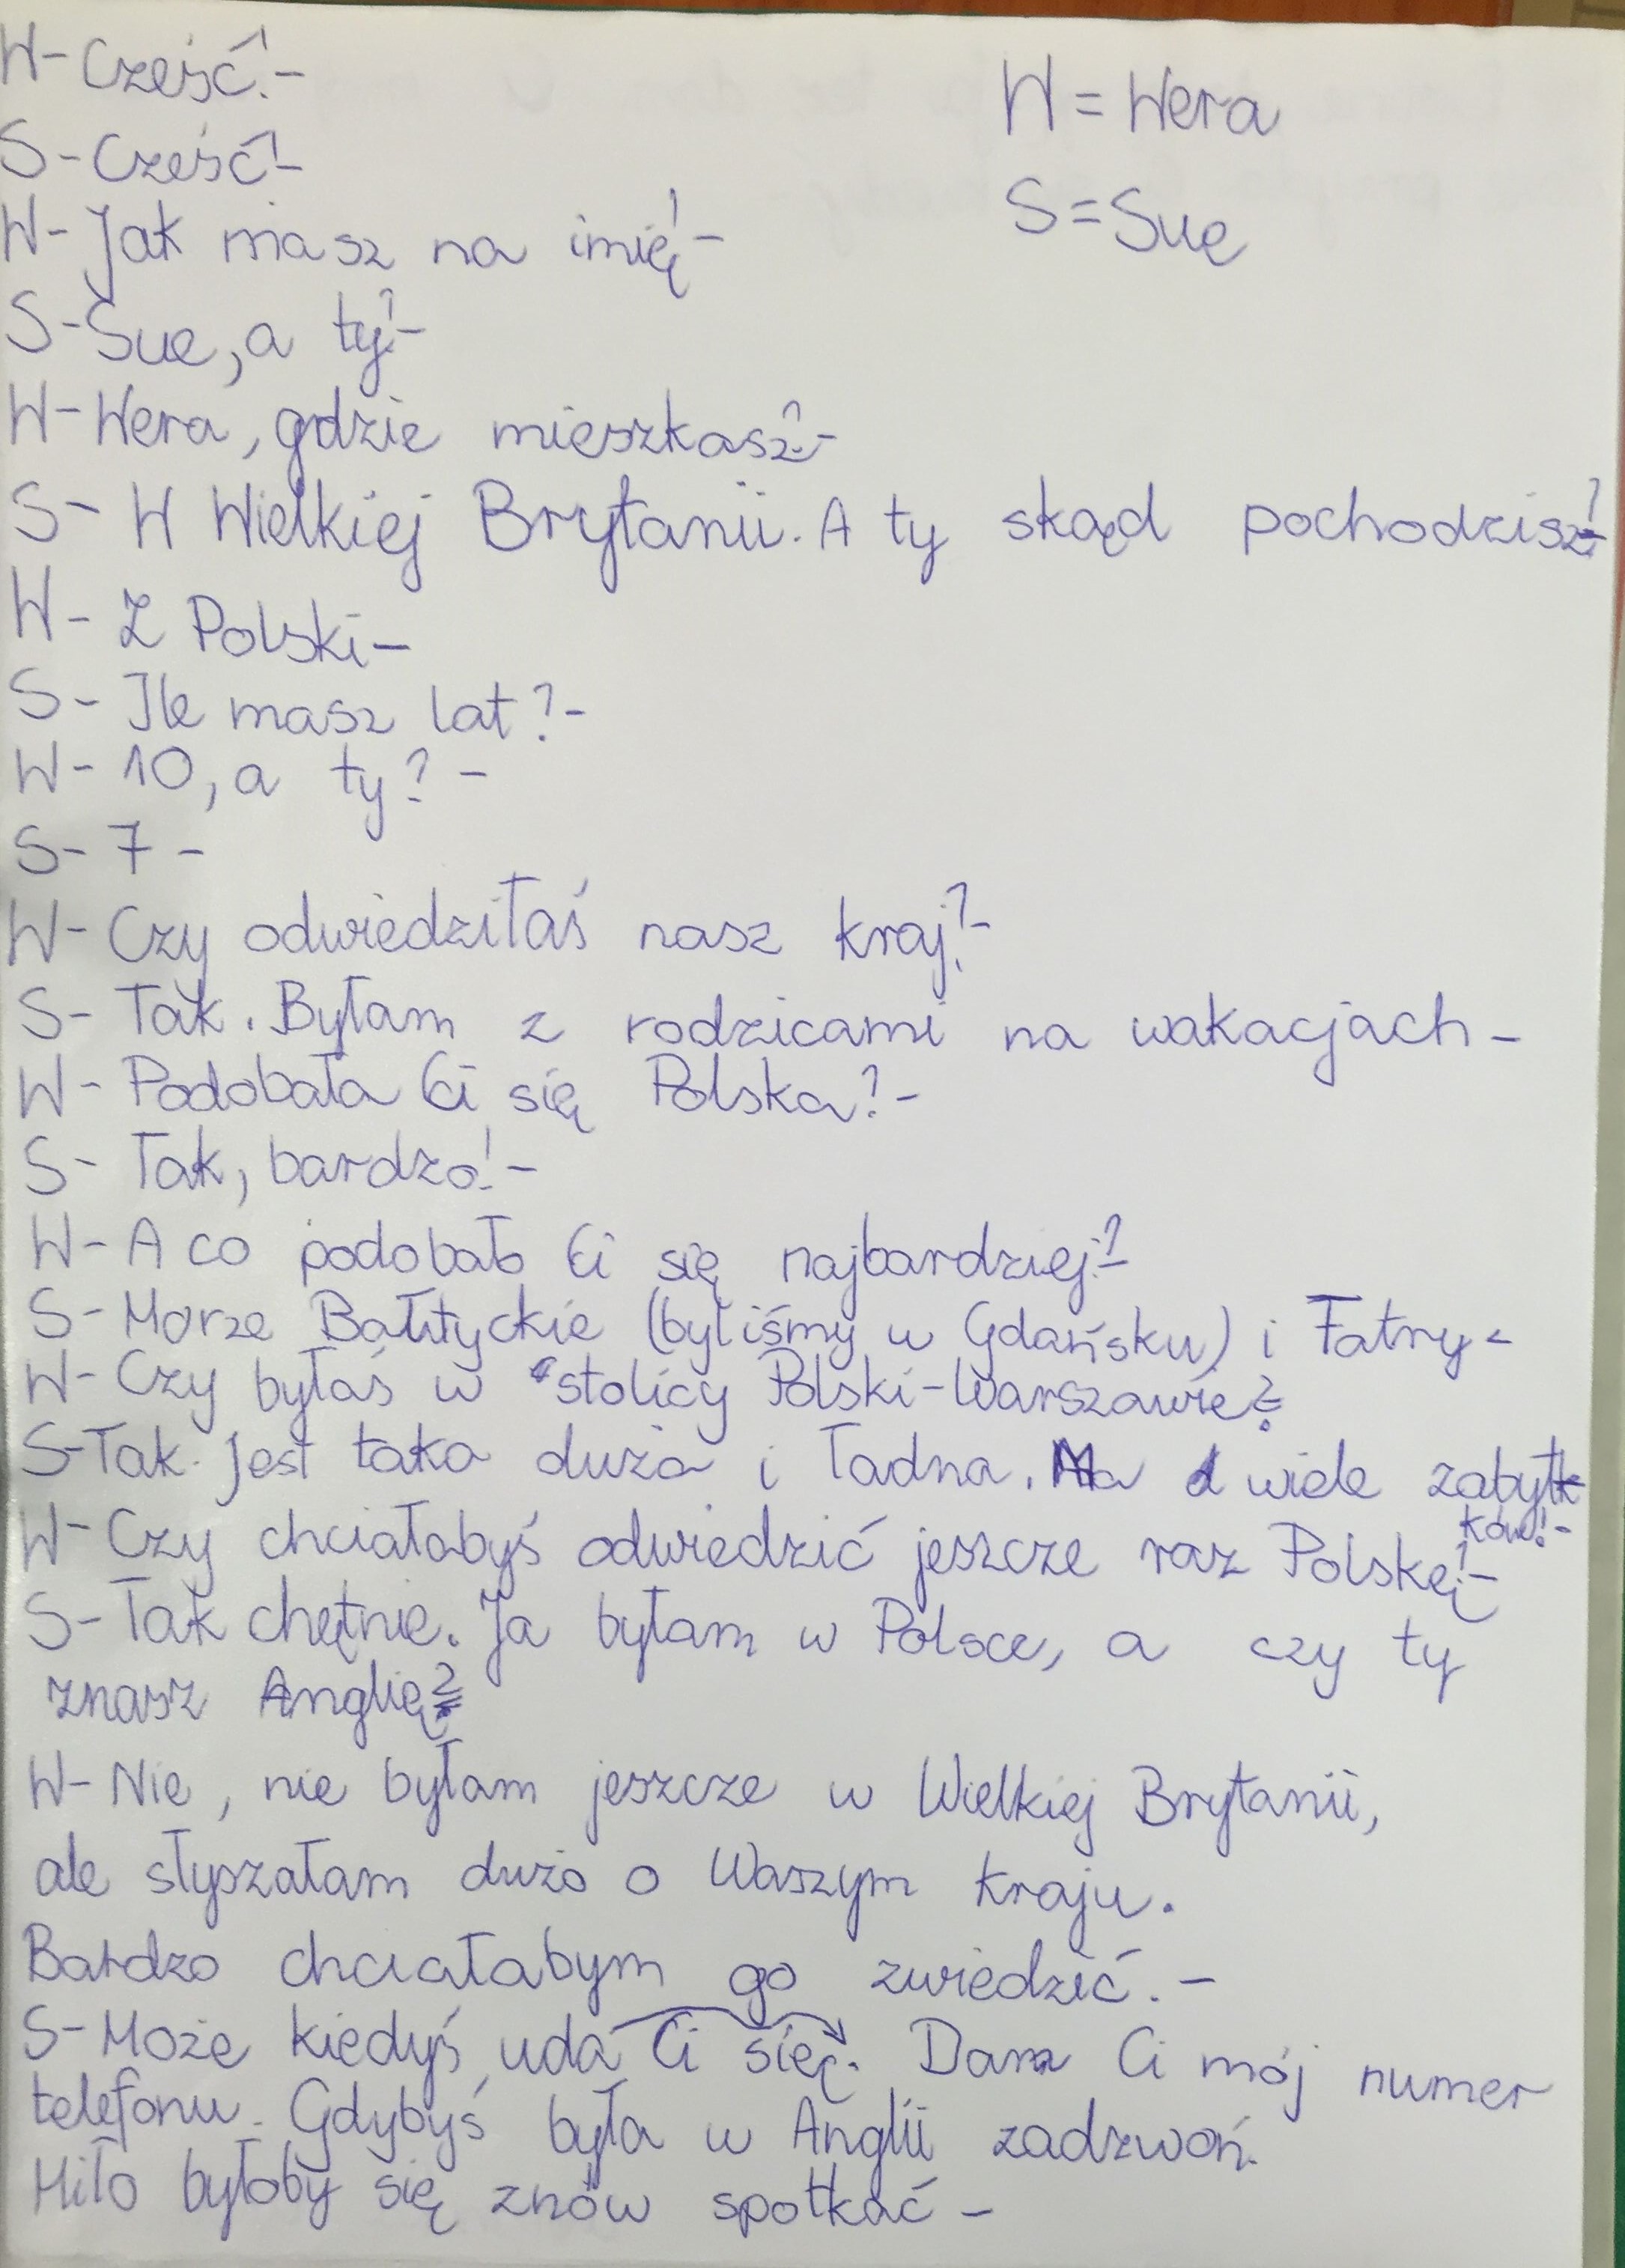 W- Cześć!-
W = Wera
S- Cześć!-
S = Sue
W- Jak masz na imię!-
S- Sue, a ty?-
W- Wera, gdzie mieszkasz?-
S- W Wielkiej Brytanii. A ty skąd pochodzisz?-
W- Z Polski-
S- Ile masz lat?-
W- 10, a ty?-
S- 7-
W- Czy odwiedziłaś nasz kraj?-
S- Tak. Byłam z rodzicami na wakacjach-
W- Podobała Ci się Polska?-
S- Tak, bardzo!-
W- A co podobało Ci się najbardziej?-
S- Morze Bałtyckie (byliśmy w Gdańsku) i Tatry-
W- Czy byłaś w stolicy Polski-Warszawie?-
S- Tak. Jest taka duża i ładna. Ma wiele zabyt
ków!-
W- Czy chciałabyś odwiedzić jeszcze raz Polskę?-
S- Tak chętnie. Ja byłam w Polsce, a czy ty
znasz Anglię?-
W- Nie, nie byłam jeszcze w Wielkiej Brytanii,
ale słyszałam dużo o Waszym kraju.
Bardzo chciałabym go zwiedzić.-
S- Może kiedyś uda Ci się. Dam Ci mój numer
telefonu. Gdybyś była w Anglii zadzwoń.
Miło byłoby się znów spotkać-